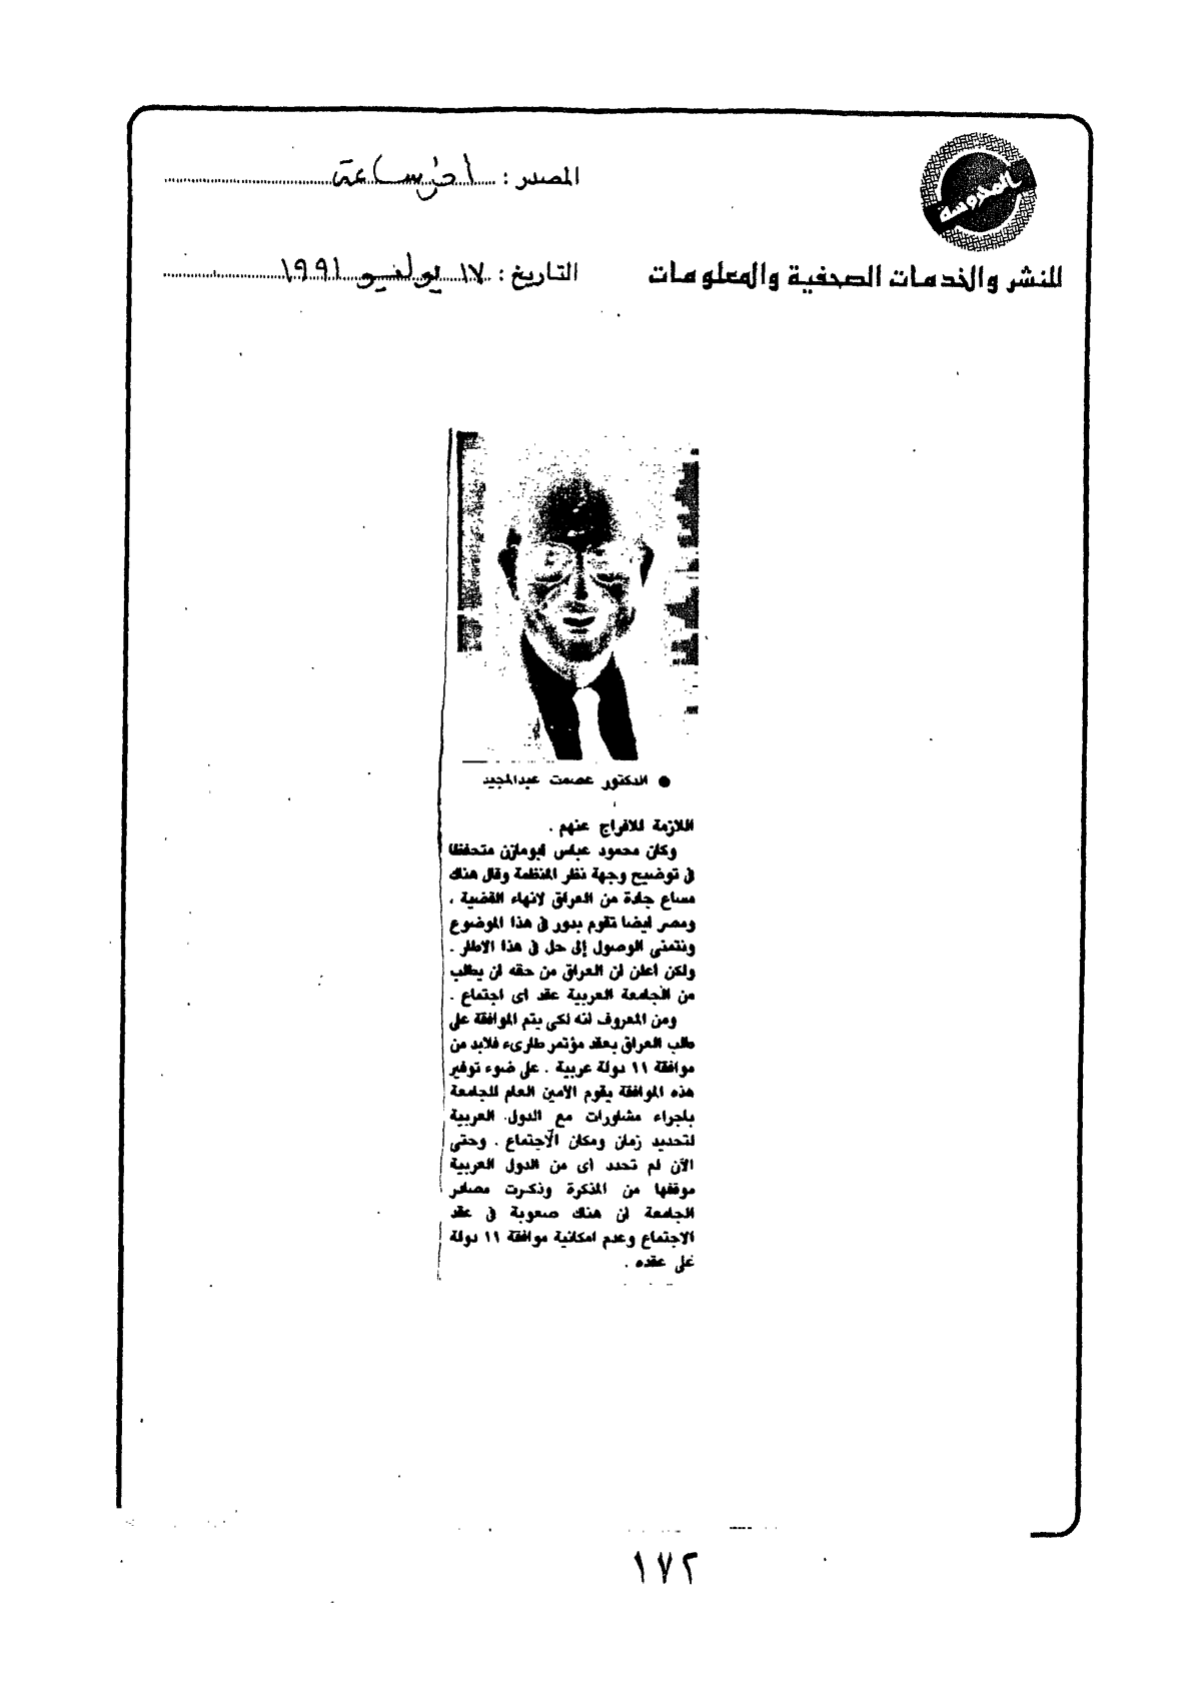 المحروسة
المصدر : اخر ساعة
للنشر والخدمات الصحفية والمعلومات
التاريخ : ١٧ يوليو ١٩٩١
● الدكتور عصمت عبدالمجيد
اللازمة للافراج عنهم .
وكان محمود عباس ابومازن متحفظا
فى توضيح وجهة نظر المنظمة وقال هناك
مساع جادة من العراق لانهاء القضية ،
ومصر ايضا تقوم بدور فى هذا الموضوع
ونتمنى الوصول إلى حل فى هذا الاطار .
ولكن أعلن أن العراق من حقه أن يطلب
من الجامعة العربية عقد اى اجتماع .
ومن المعروف أنه لكى يتم الموافقة على
طلب العراق بعقد مؤتمر طارىء فلابد من
موافقة ١١ دولة عربية . على ضوء توفير
هذه الموافقة يقوم الأمين العام للجامعة
باجراء مشاورات مع الدول العربية
لتحديد زمان ومكان الاجتماع . وحتى
الآن لم تحدد اى من الدول العربية
موقفها من المذكرة وذكرت مصادر
الجامعة أن هناك صعوبة فى عقد
الاجتماع وعدم امكانية موافقة ١١ دولة
على عقده .
١٧٢